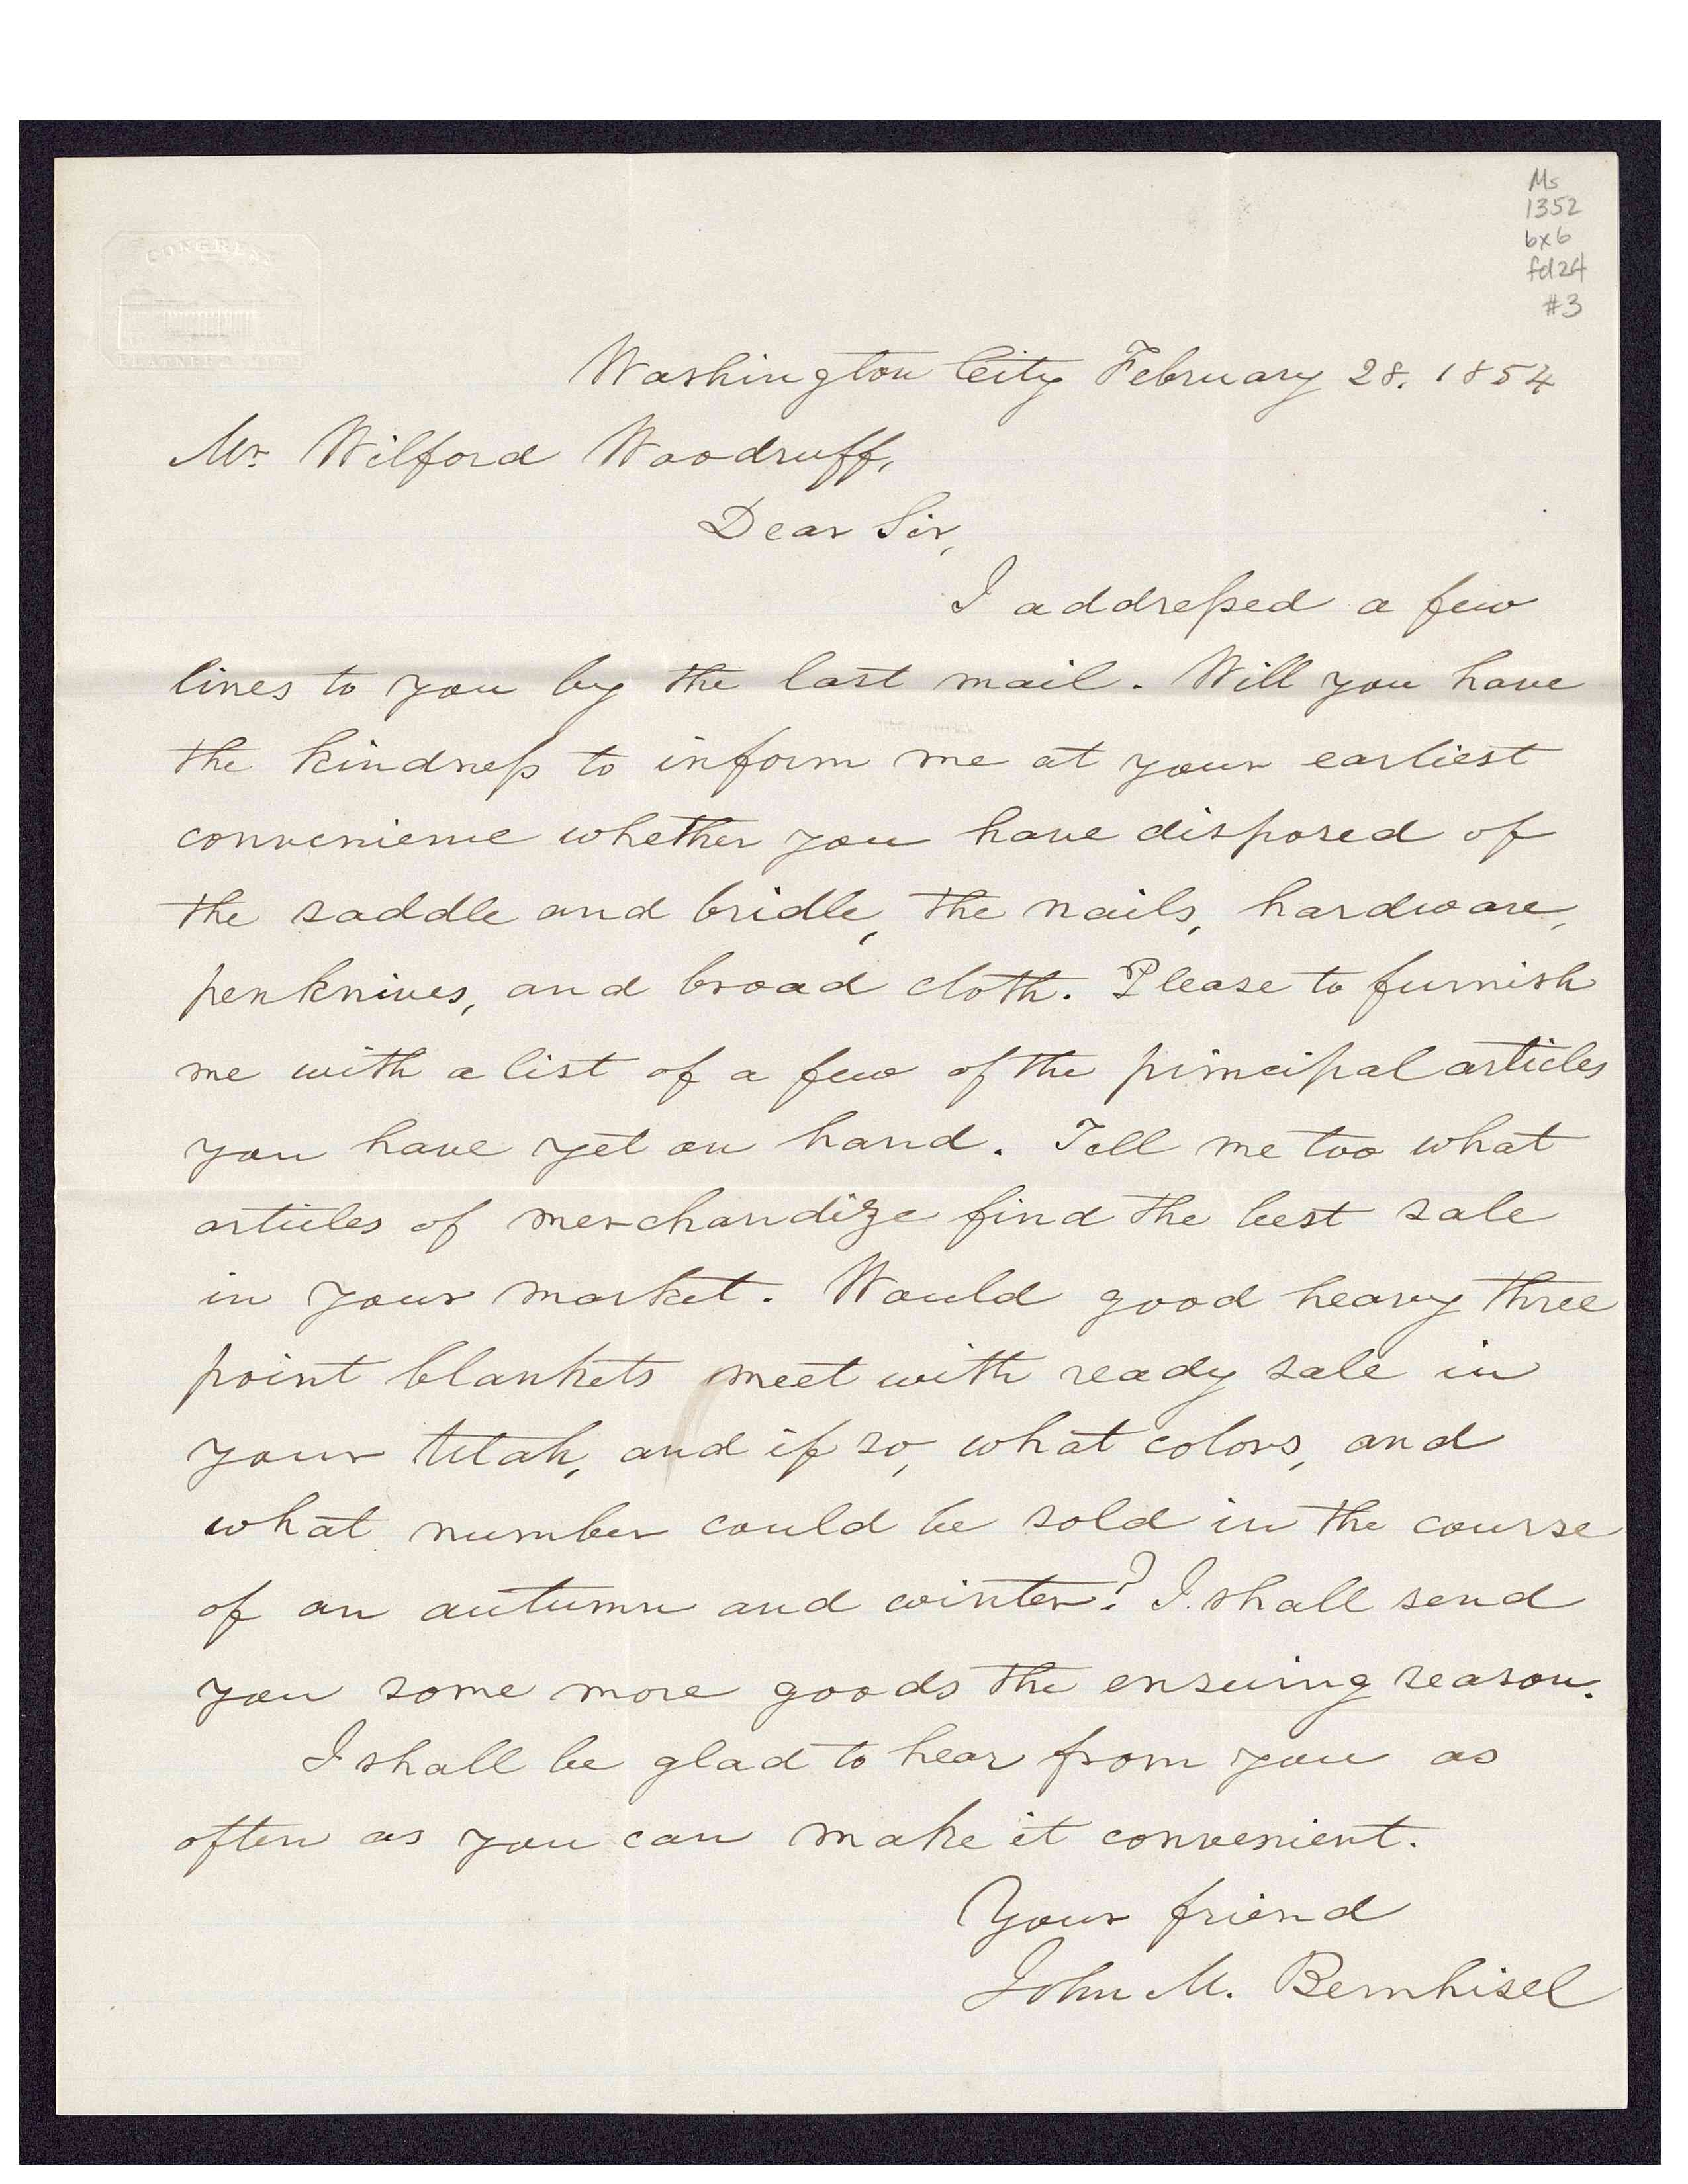 CONGRESS
Ms
1352
bx6
fd24
#3
Washington City February 28. 1854
Mr. Wilford Woodruff,
Dear Sir,
I addreſsed a few
lines to you by the last mail. Will you have
the kindneſs to inform me at your earliest
convenience whether you have disposed of
the saddle and bridle, the nails, hardware,
penknives, and broad cloth. Please to furnish
me with a list of a few of the principal articles
you have yet on hand. Tell me too what
articles of merchandize find the best sale
in your market. Would good heavy three
point blankets meet with ready sale in
your Utah, and if so, what colors, and
what number could be sold in the course
of an autumn and winter? I shall send
you some more goods the ensuing season.
I shall be glad to hear from you as
often as you can make it convenient.
Your friend
John M. Bernhisel